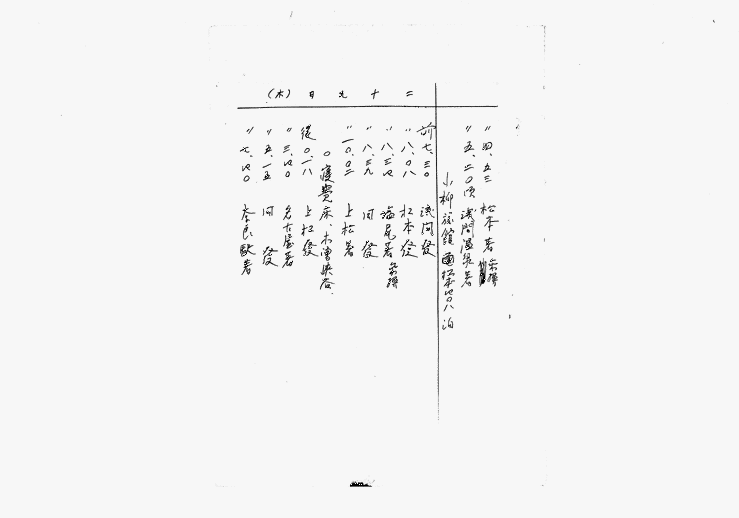 〃 四、五三 松本着 乗換
〃 五、二〇頃 浅間温泉着
小柳旅館 電松本四〇八 泊
二十九日(木)
前七、三〇 浅間發
〃 八、〇八 松本發
〃 八、三四 塩尻着 乗換
〃 八、三九 同 發
〃 一〇、〇二 上松着
○寝覺床、木曽峡谷、
後〇、一八 上松發
〃 三、四〇 名古屋着
〃 五、一五 同 發
〃 七、四〇 奈良駅着